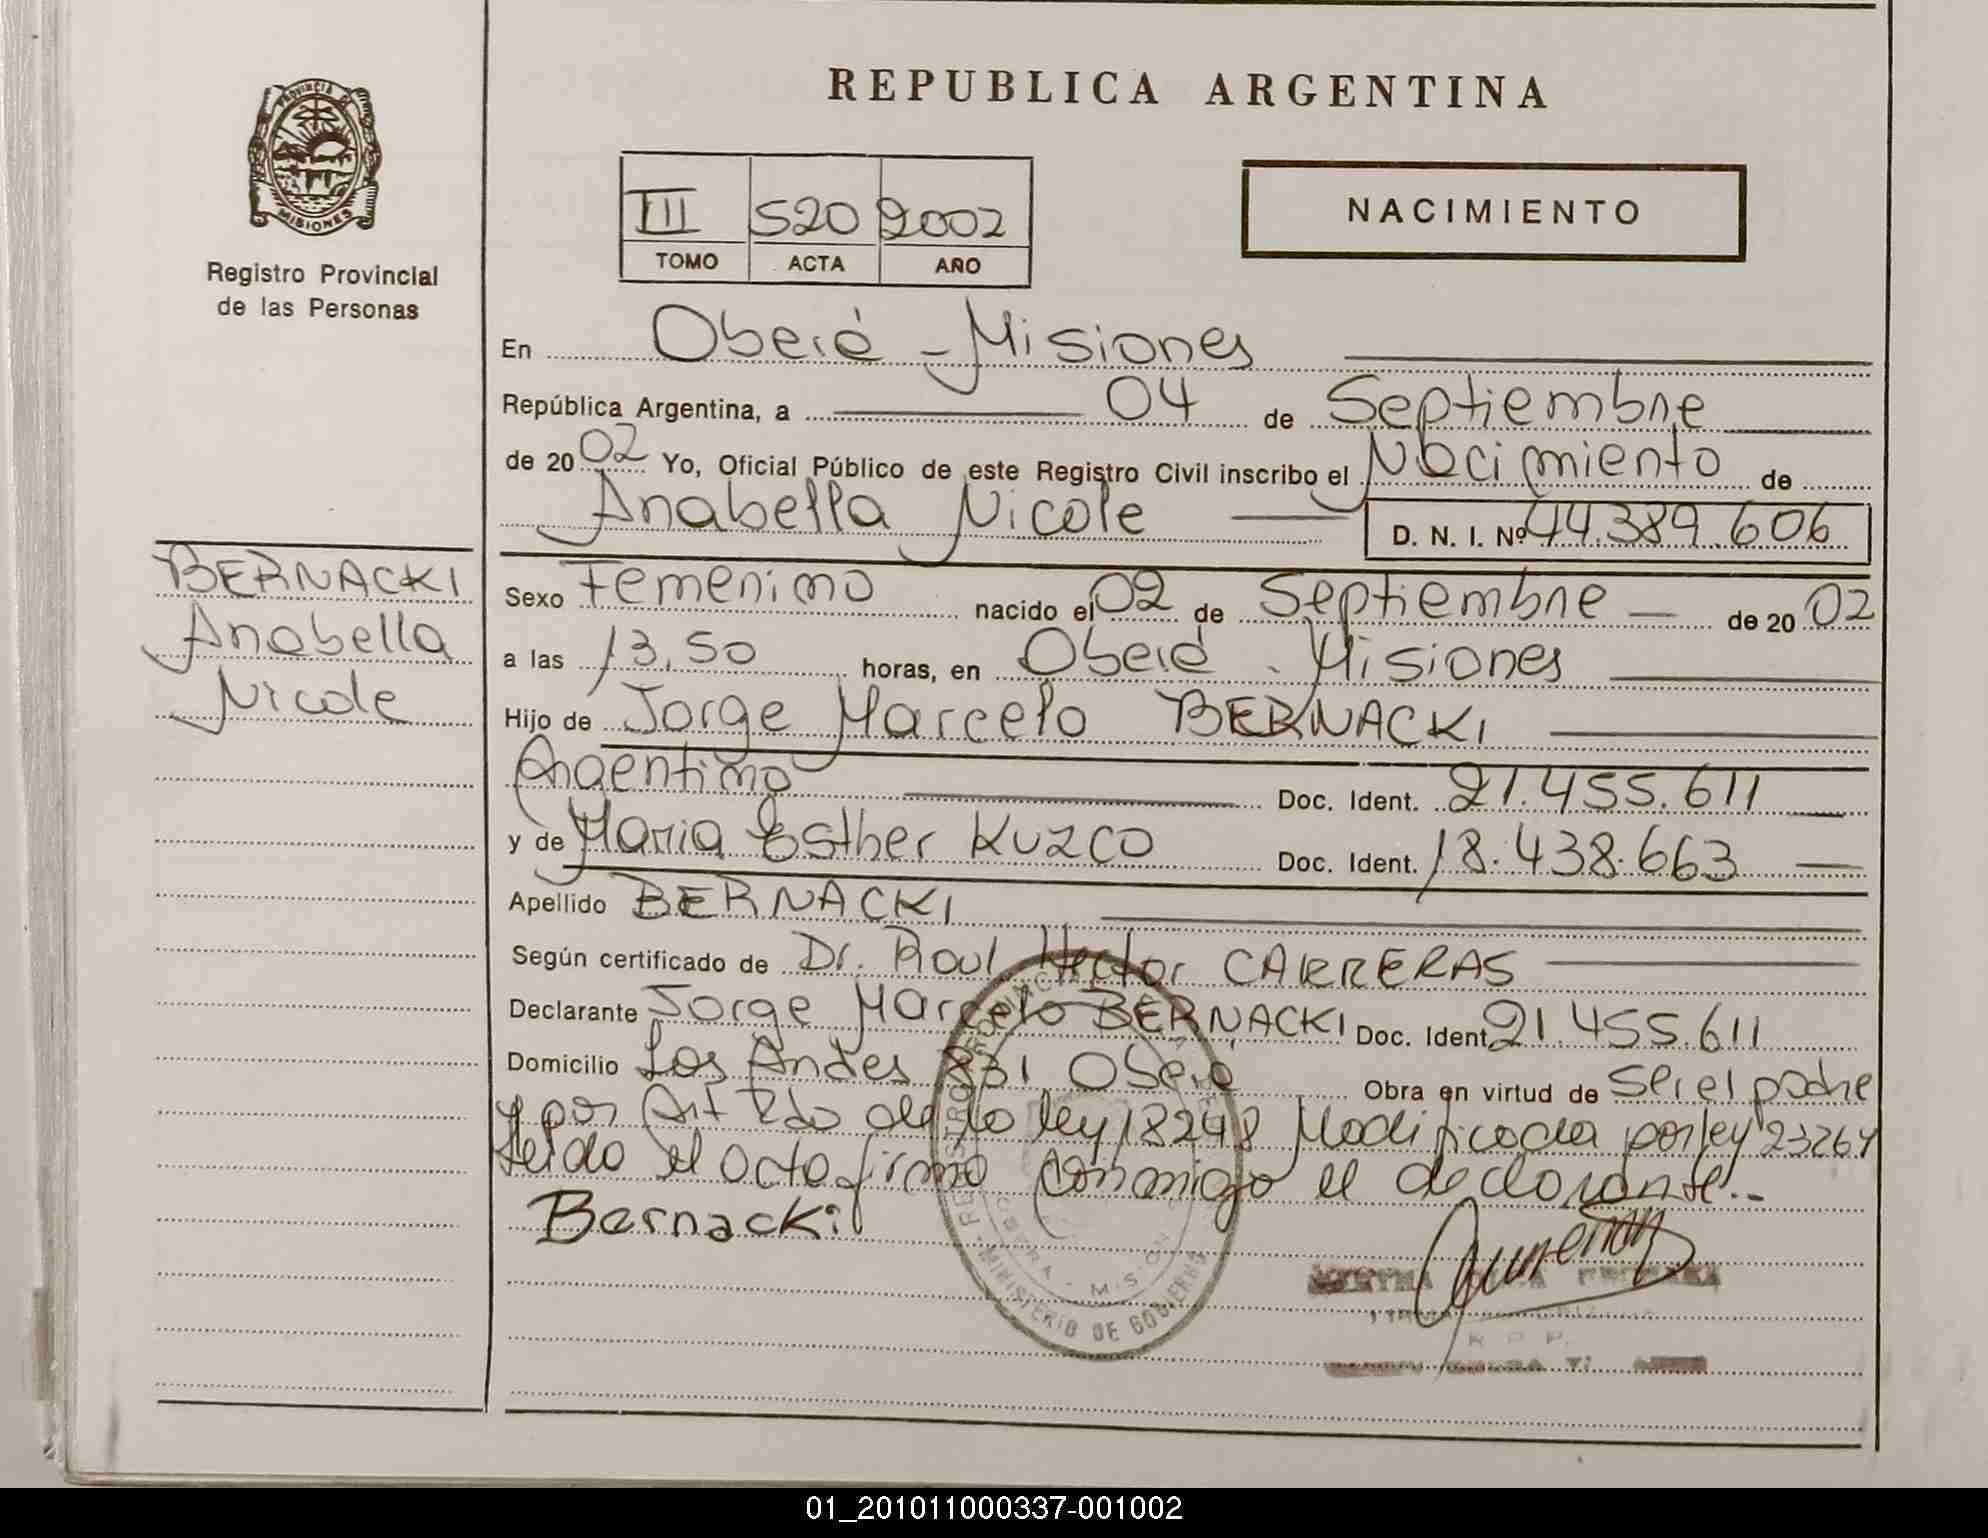 REPUBLICA ARGENTINA
PROVINCIA DE
MISIONES
Registro Provincial
de las Personas
III 520 2002
TOMO ACTA AÑO
NACIMIENTO
En Oberá - Misiones
República Argentina, a 04 de Septiembre
de 2002 Yo, Oficial Público de este Registro Civil inscribo el Nacimiento de
Anabella Nicole D. N. I. Nº 44.389.606
BERNACKI
Anabella
Nicole
Sexo Femenino nacido el 02 de Septiembre de 2002
a las 13,50 horas, en Oberá - Misiones
Hijo de Jorge Marcelo BERNACKI
Argentino Doc. Ident. 21.455.611
y de Maria Esther KUZCO Doc. Ident. 18.438.663
Apellido BERNACKI
Según certificado de Dr. Raul Hector CARRERAS
Declarante Jorge Marcelo BERNACKI Doc. Ident. 21.455.611
Domicilio Los Andes 831 Oberá Obra en virtud de ser el padre
y por Art 2do de la ley 18248 Modificada por ley 23264
leído el acta firma conmigo el declarante..
Bernacki
MINISTERIO DE GOBIERNO
R. P. P.
01_201011000337-001002